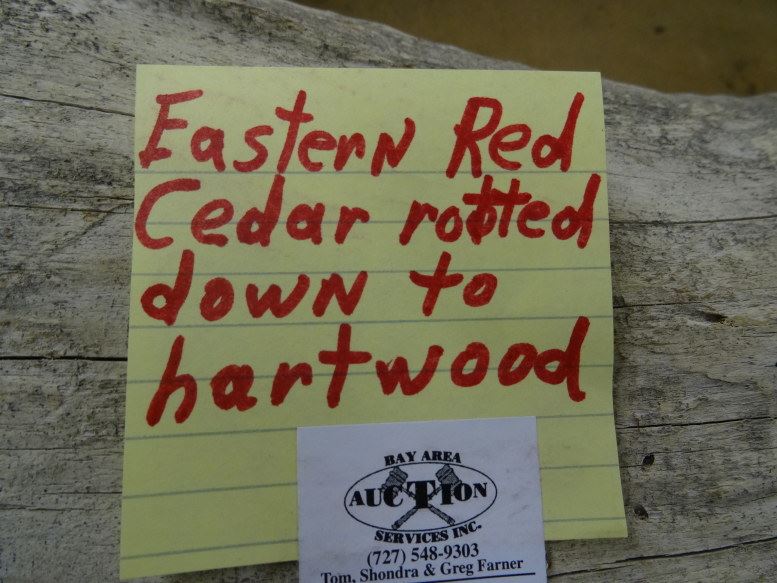 Eastern Red
Cedar rotted
down to
hartwood
BAY AREA
AUCTION
SERVICES INC.
(727) 548-9303
Tom, Shondra & Greg Farner